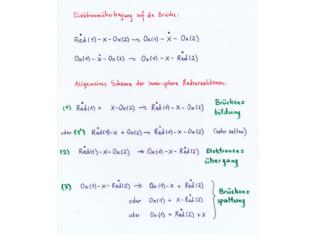 Elektronenübertragung auf die Brücke:
Red(1)-X-Ox(2) → Ox(1)-Ẋ-Ox(2)
Ox(1)-Ẋ-Ox(2) → Ox(1)-X-Red(2)
Allgemeines Schema der inner-sphere Redoxreaktionen:
(1) Red(1) + X-Ox(2) → Red(1)-X-Ox(2) Brücken-
bildung
oder (1') Red(1)-X + Ox(2) → Red(1)-X-Ox(2) (sehr selten)
(2) Red(1)-X-Ox(2) → Ox(1)-X-Red(2) Elektronen-
übergang
(3) Ox(1)-X-Red(2) → Ox(1)-X + Red(2)
oder Ox(1) + X-Red(2) Brücken-
spaltung
oder Ox(1) + Red(2) + X